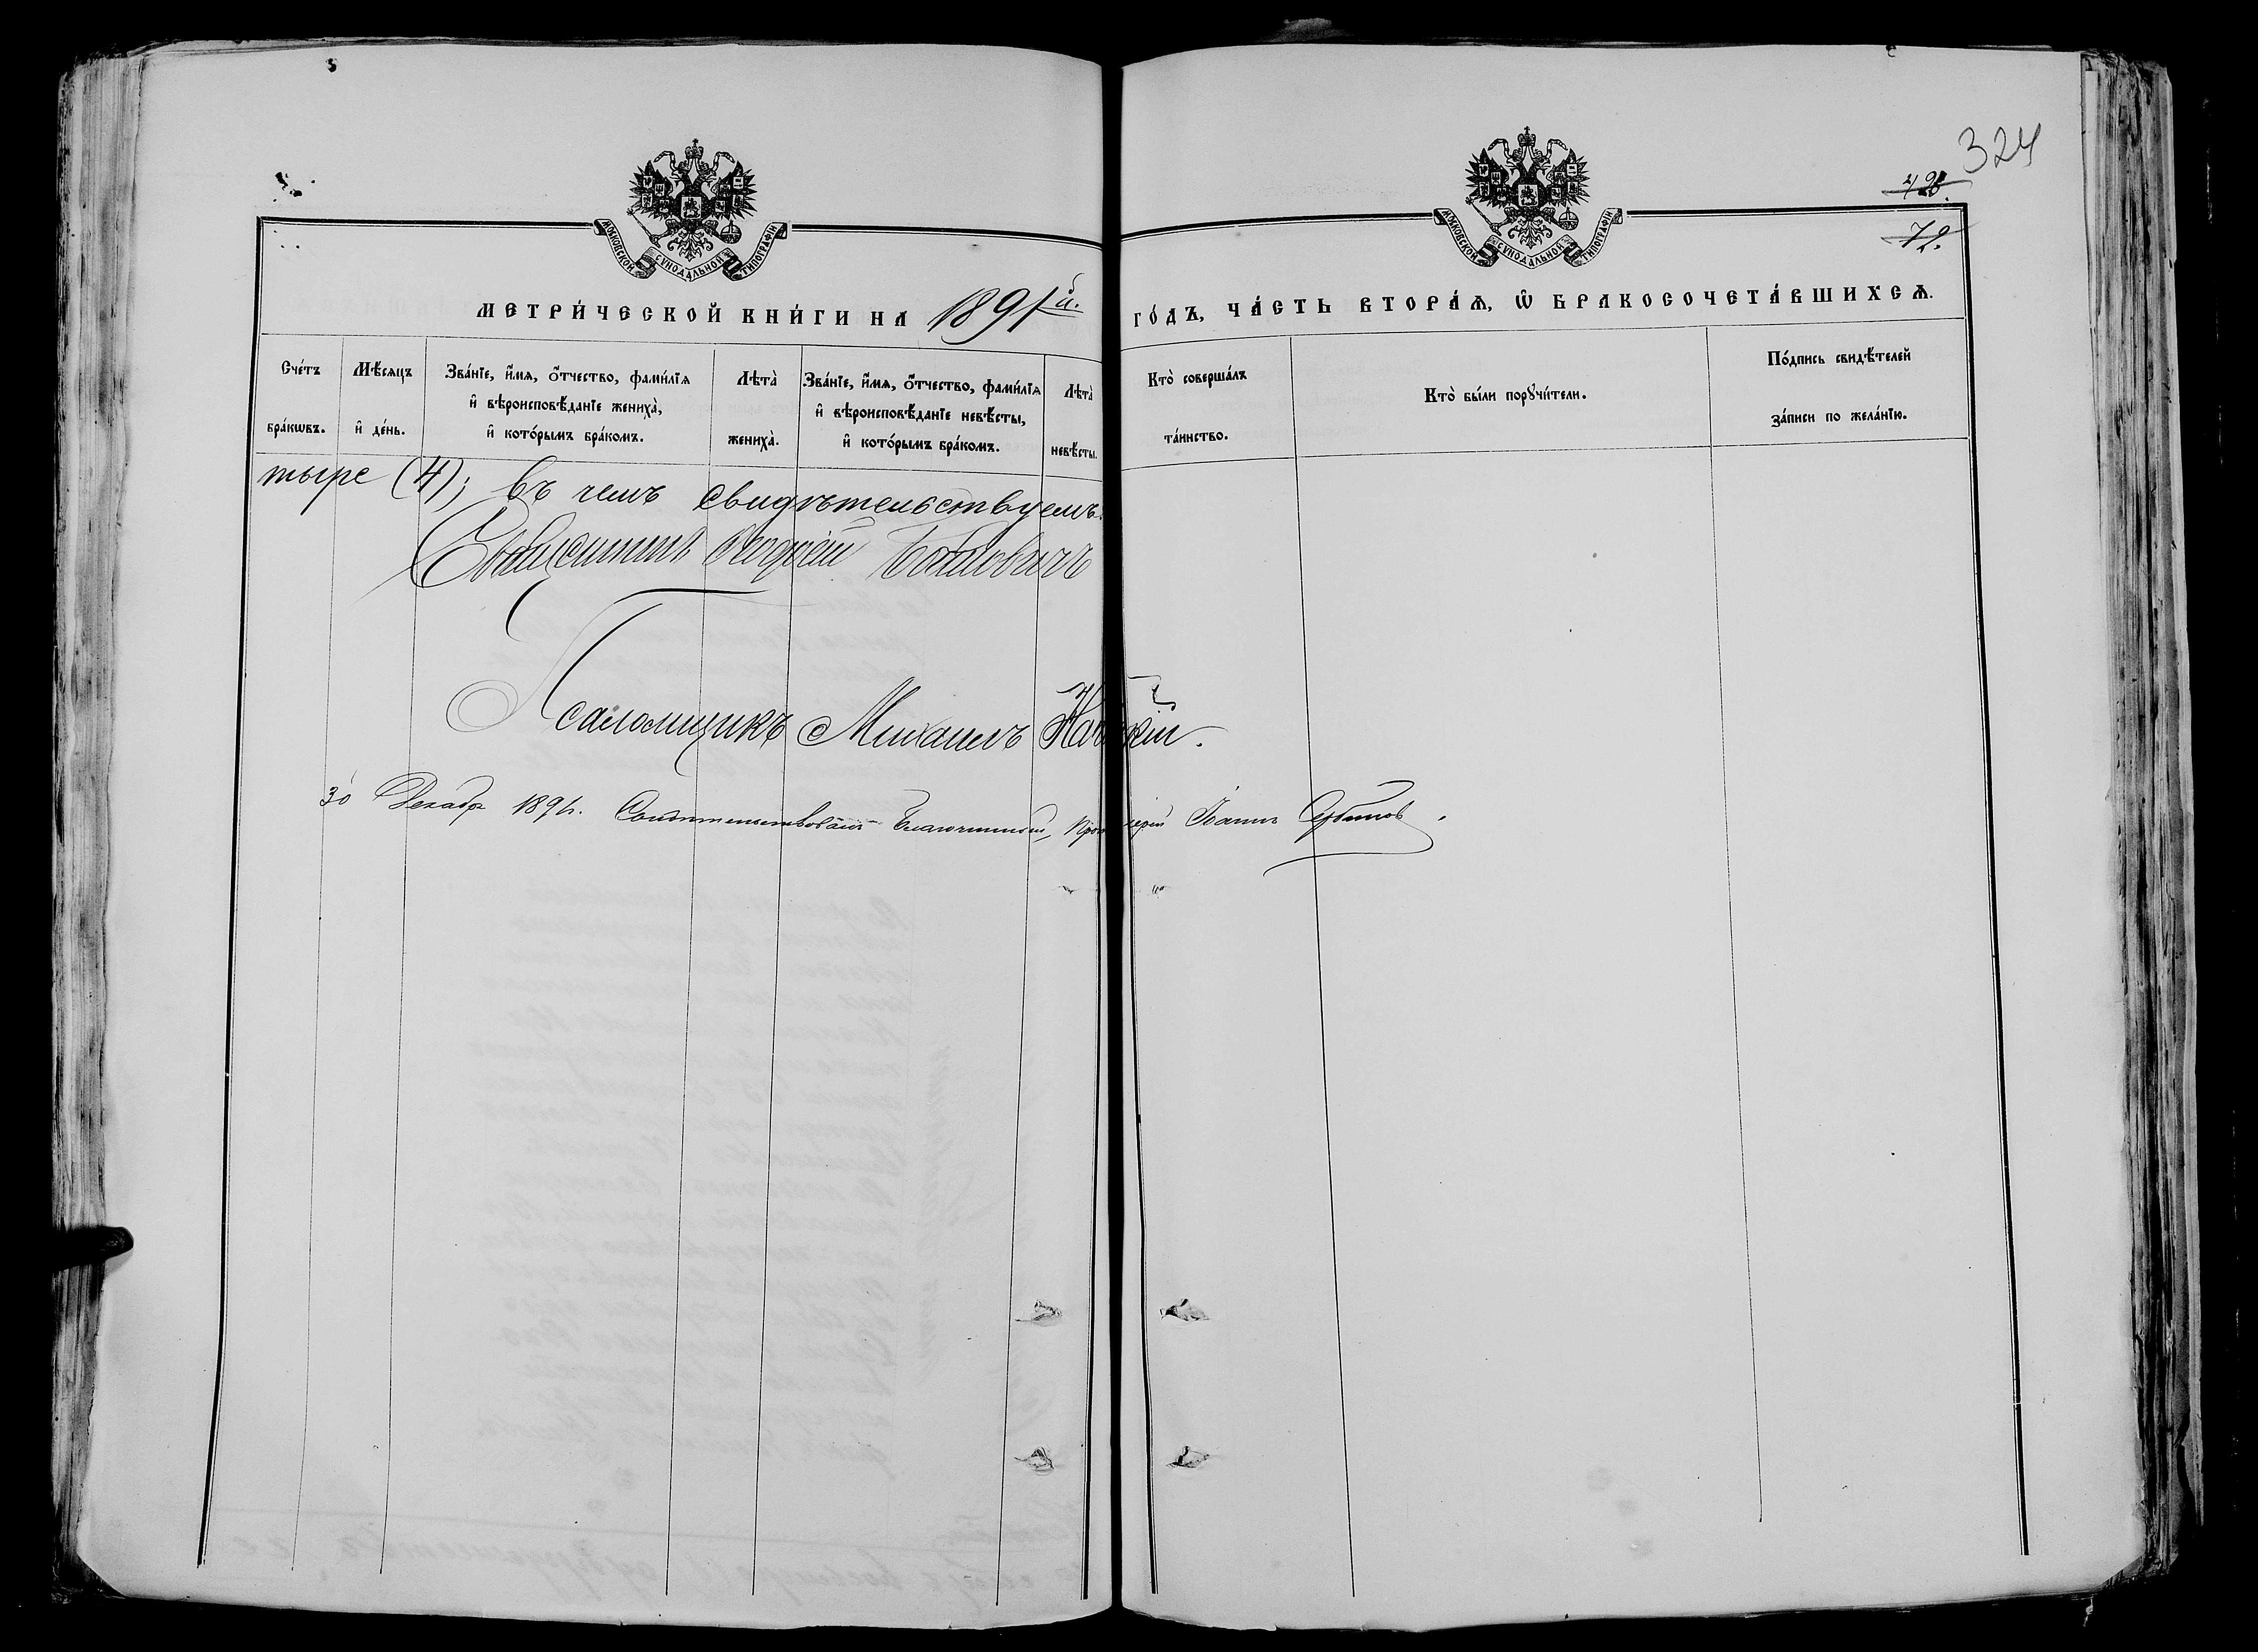 324
МОСКОВСКОЙ СѴНОДАЛЬНОЙ ТИПОГРАФІИ
МОСКОВСКОЙ СѴНОДАЛЬНОЙ ТИПОГРАФІИ
72.
МЕТРИ́ЧЕСКОЙ КНИ́ГИ НА 1891й. ГО́ДЪ, ЧА́СТЬ ВТОРА́Ѧ, Ѡ҆ БРАКОСОЧЕТА́ВШИХСѦ.
Сче́тъ бра́кѡвъ.
Мѣ́сяцъ и҆ де́нь.
Зва́нїе, и҆́мѧ, ѻ҆́тчество, фами́лїѧ и҆ вѣроисповѣ́данїе жениха̀, и҆ кото́рымъ бра́комъ.
Лѣта̀ жениха̀.
Зва́нїе, и҆́мѧ, ѻ҆́тчество, фами́лїѧ и҆ вѣроисповѣ́данїе невѣ́сты, и҆ кото́рымъ бра́комъ.
Лѣта̀ невѣ́сты.
Кто̀ соверша́лъ та́инство.
Кто̀ бы́ли порꙋчи́тели.
По́дпись свидѣ́телей за́писи по жела́нїю.
тыре (4); въ чемъ свидѣтельствуемъ.
Священникъ
Псаломщикъ Михаилъ
30 Декабр 1891. Свидѣтельствовалъ Благочинный, Протоіерей Іоаннъ